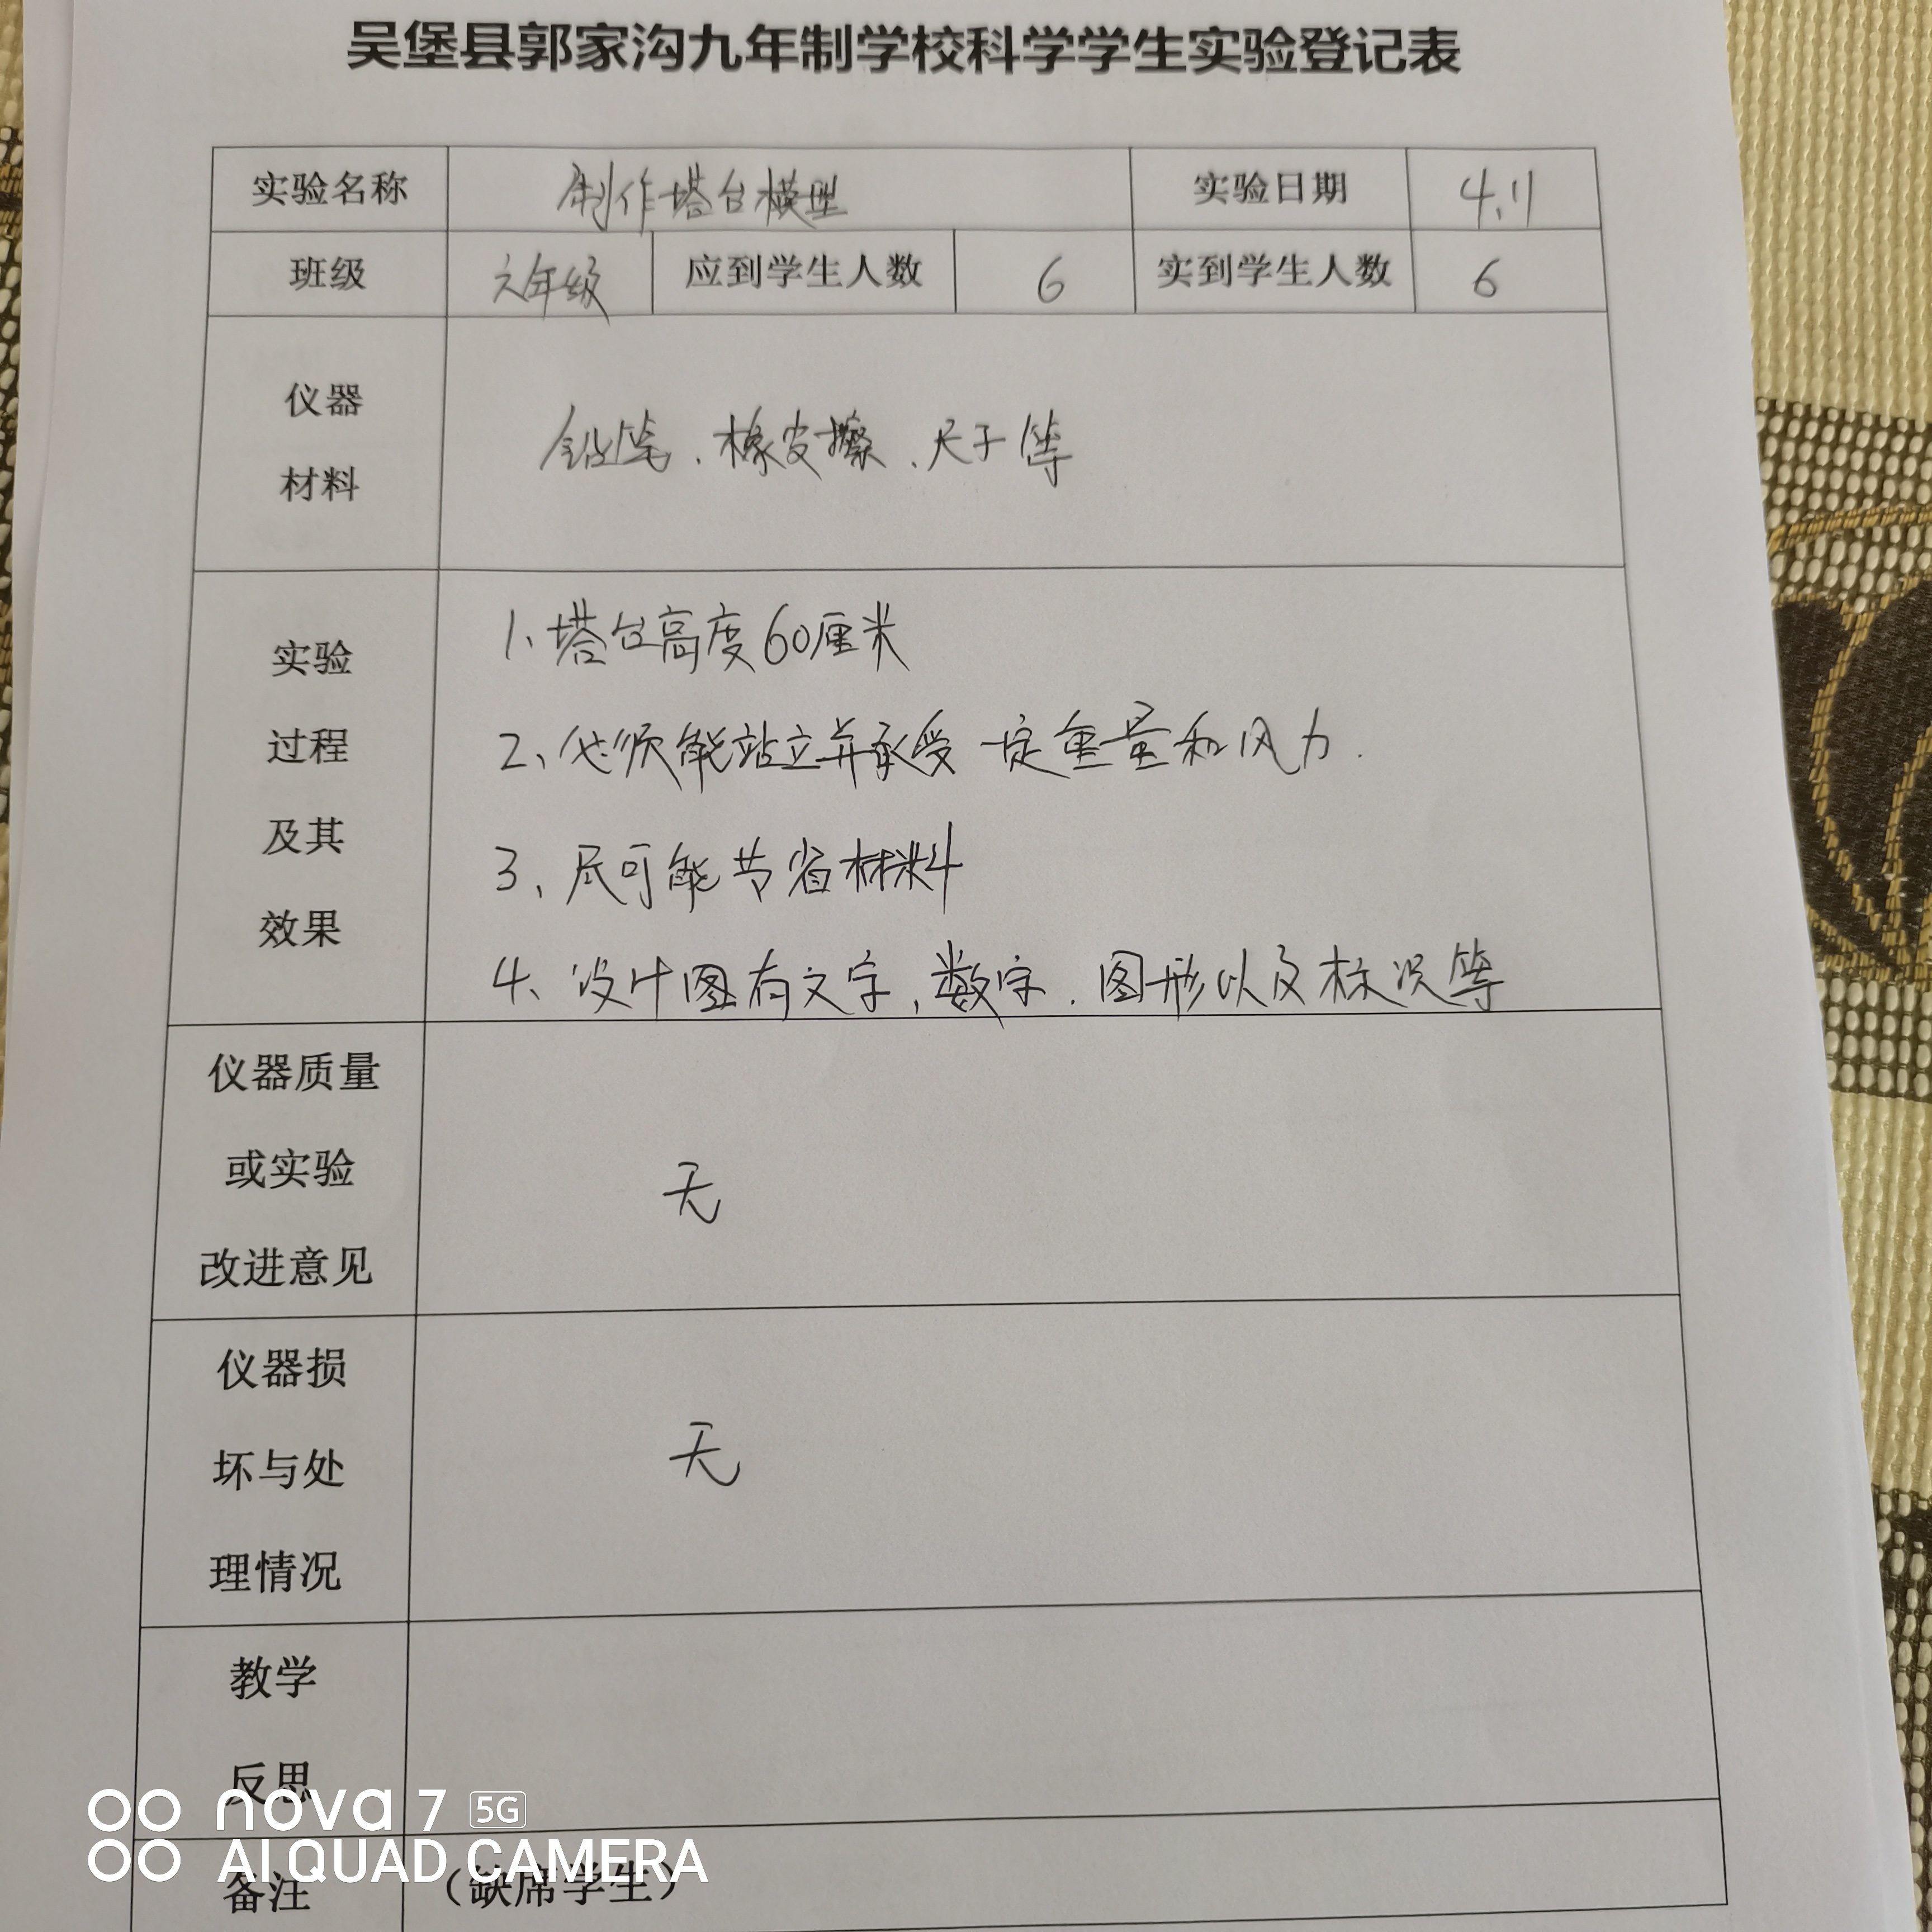 吴堡县郭家沟九年制学校科学学生实验登记表
实验名称 制作塔台模型 实验日期 4.11
班级 六年级 应到学生人数 6 实到学生人数 6
仪器
材料
铅笔、橡皮擦、尺子等
实验
过程
及其
效果
1、塔台高度60厘米
2、必须能站立并承受一定重量和风力.
3、尽可能节省材料
4、设计图有文字,数字、图形以及标识等
仪器质量
或实验
改进意见
无
仪器损
坏与处
理情况
无
教学
反思
备注 (缺席学生)
nova 7 5G
AI QUAD CAMERA